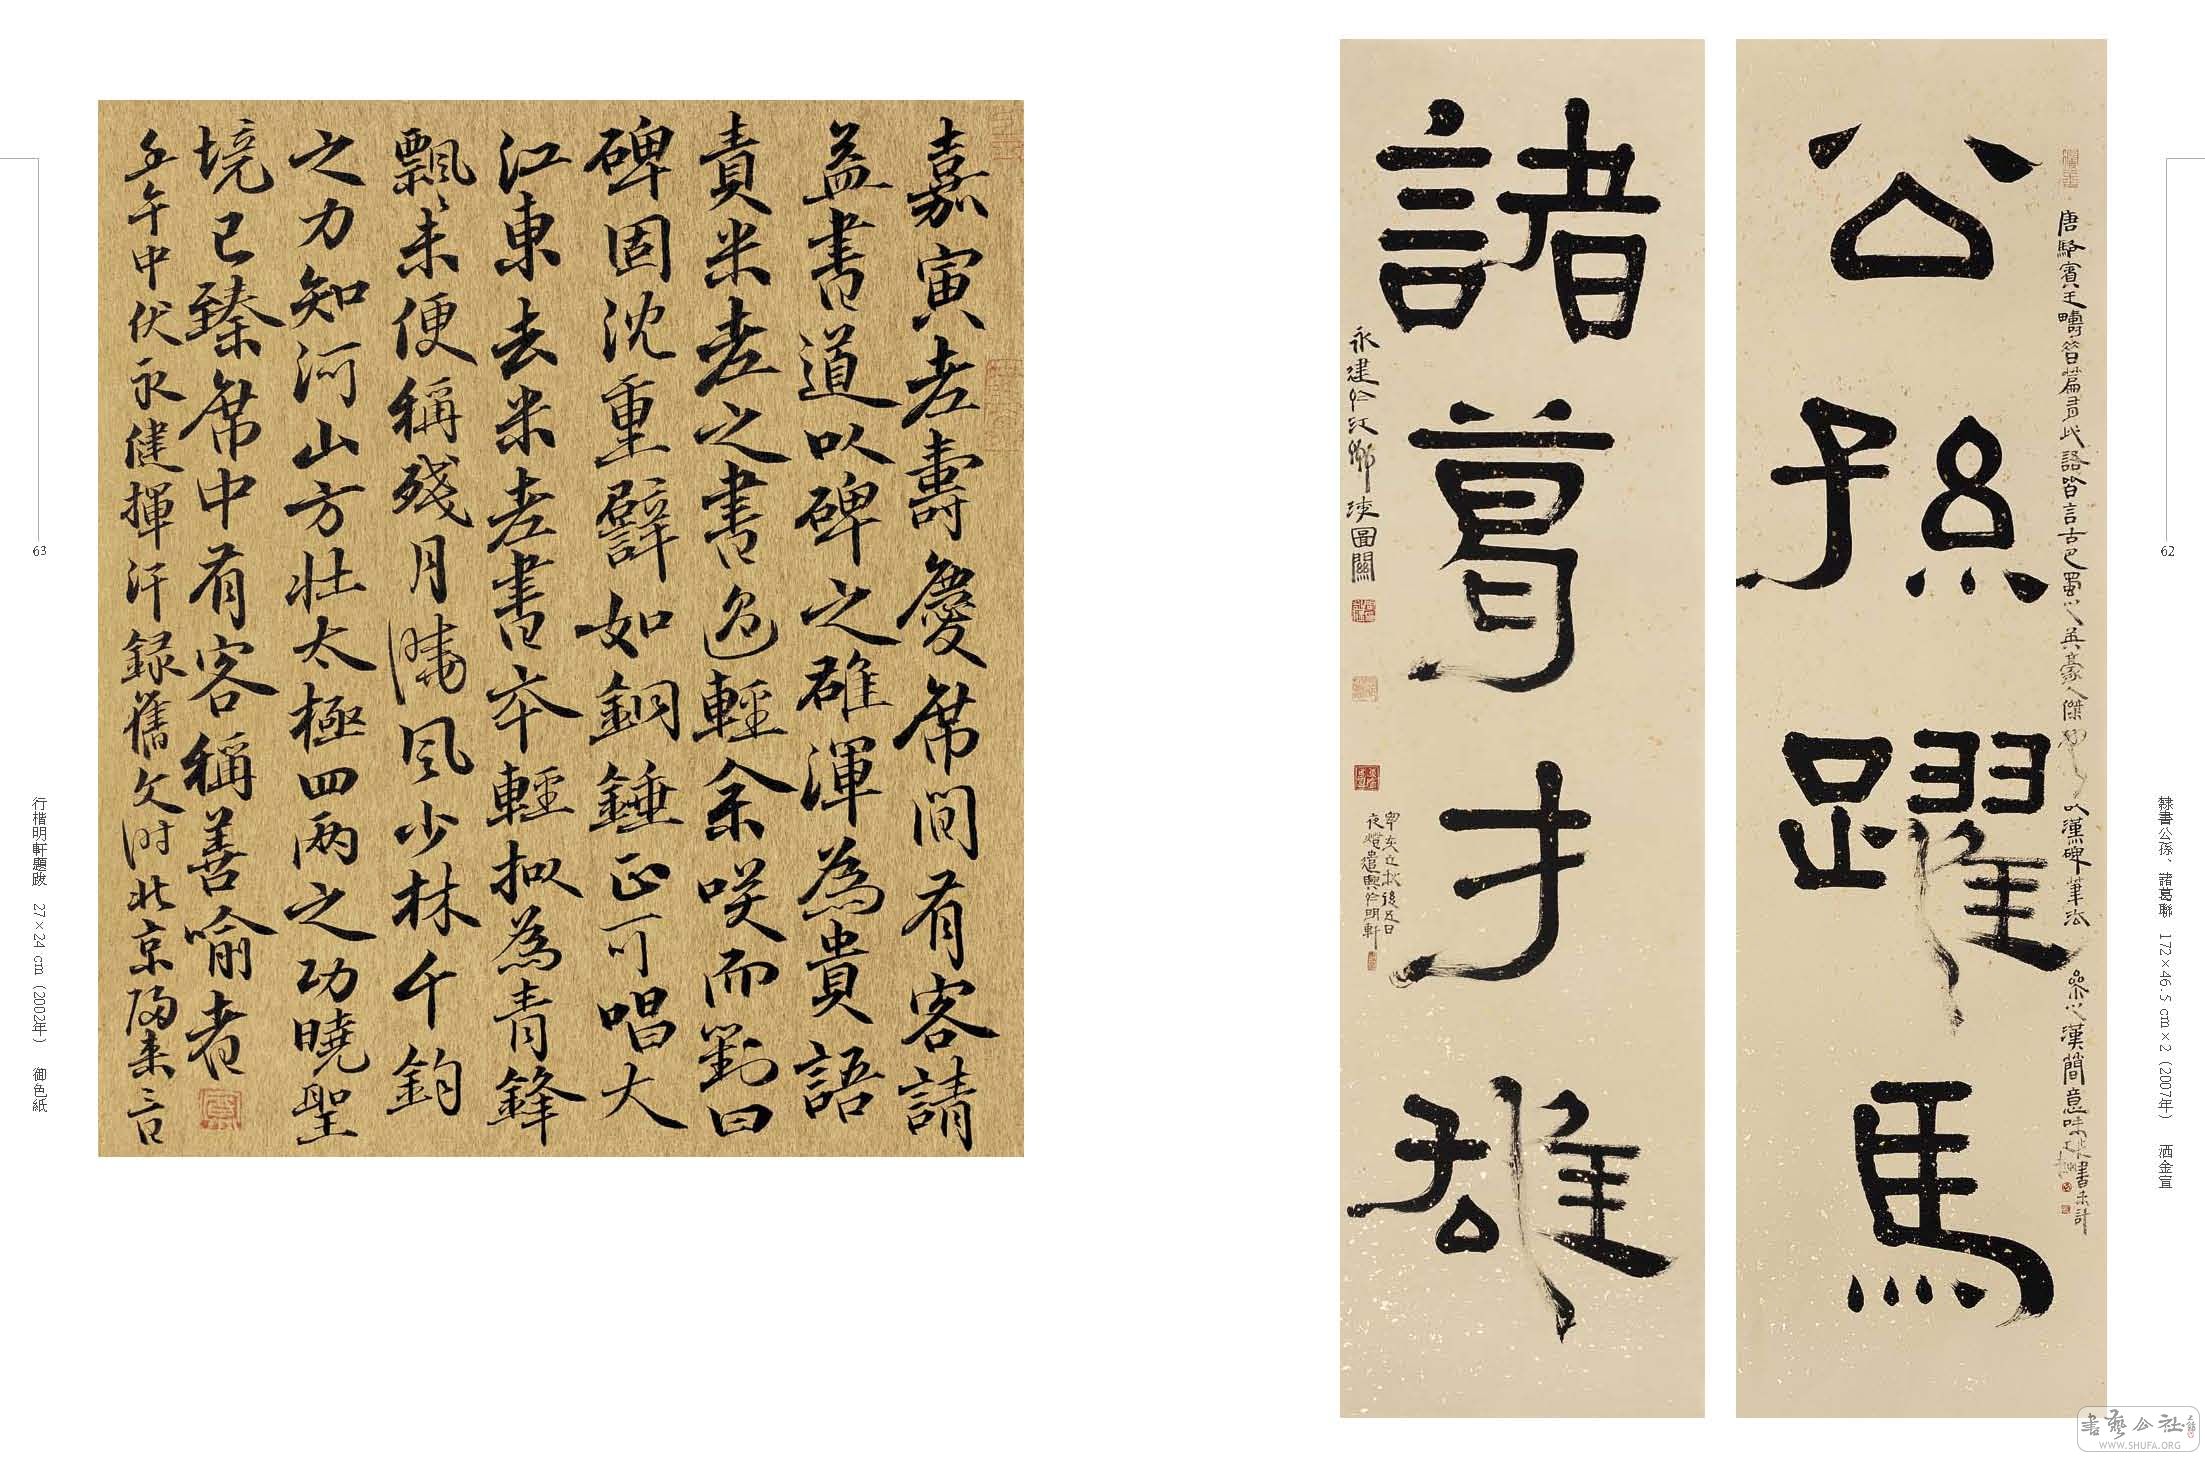 隸書公孫、諸葛聯 172×46.5 cm×2（2007年） 洒金宣
62
唐駱賓王疇昔篇有此語皆言古巴蜀之英豪人傑也 以漢碑筆法 參之漢簡意味
公孫躍馬
諸葛才雄
永建於江鄉
亥立秋後五日
夜燈遣興於明軒
嘉寅老壽慶席間有客請
益書道以碑之雄渾為貴語
責米老之書過輕余咲而對曰
碑固沈重譬如銅錘正可唱大
江東去米老書本輕拟為青鋒
飄〻来便稱殘月曉風少林千鈞
之力知河山方壯太極四兩之功曉聖
境已臻席中有客稱善喻者
壬午中伏永健揮汗録舊文時北京歸来
行楷明軒題跋 27×24 cm（2002年） 御色紙
63
書藝公社
WWW.SHUFA.ORG